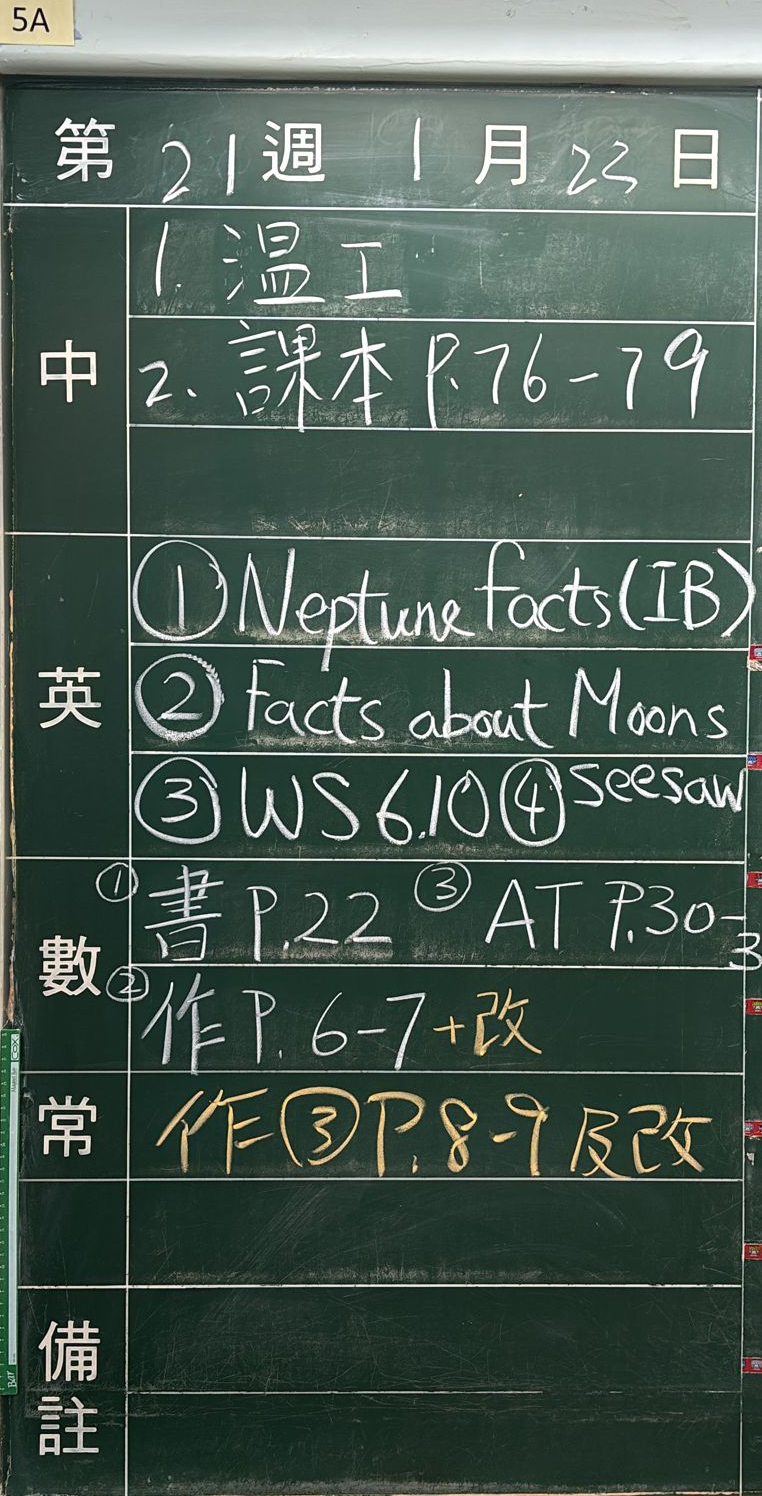 5A
第 21 週 1 月 23 日
中
1. 温工
2. 課本 P.76-79
英
① Neptune facts (IB)
② Facts about Moons
③ WS 6.10 ④ seesaw
數
① 書 P.22 ③ AT P.30-3
② 作 P. 6-7 + 改
常
作③ P.8-9 及改
備註